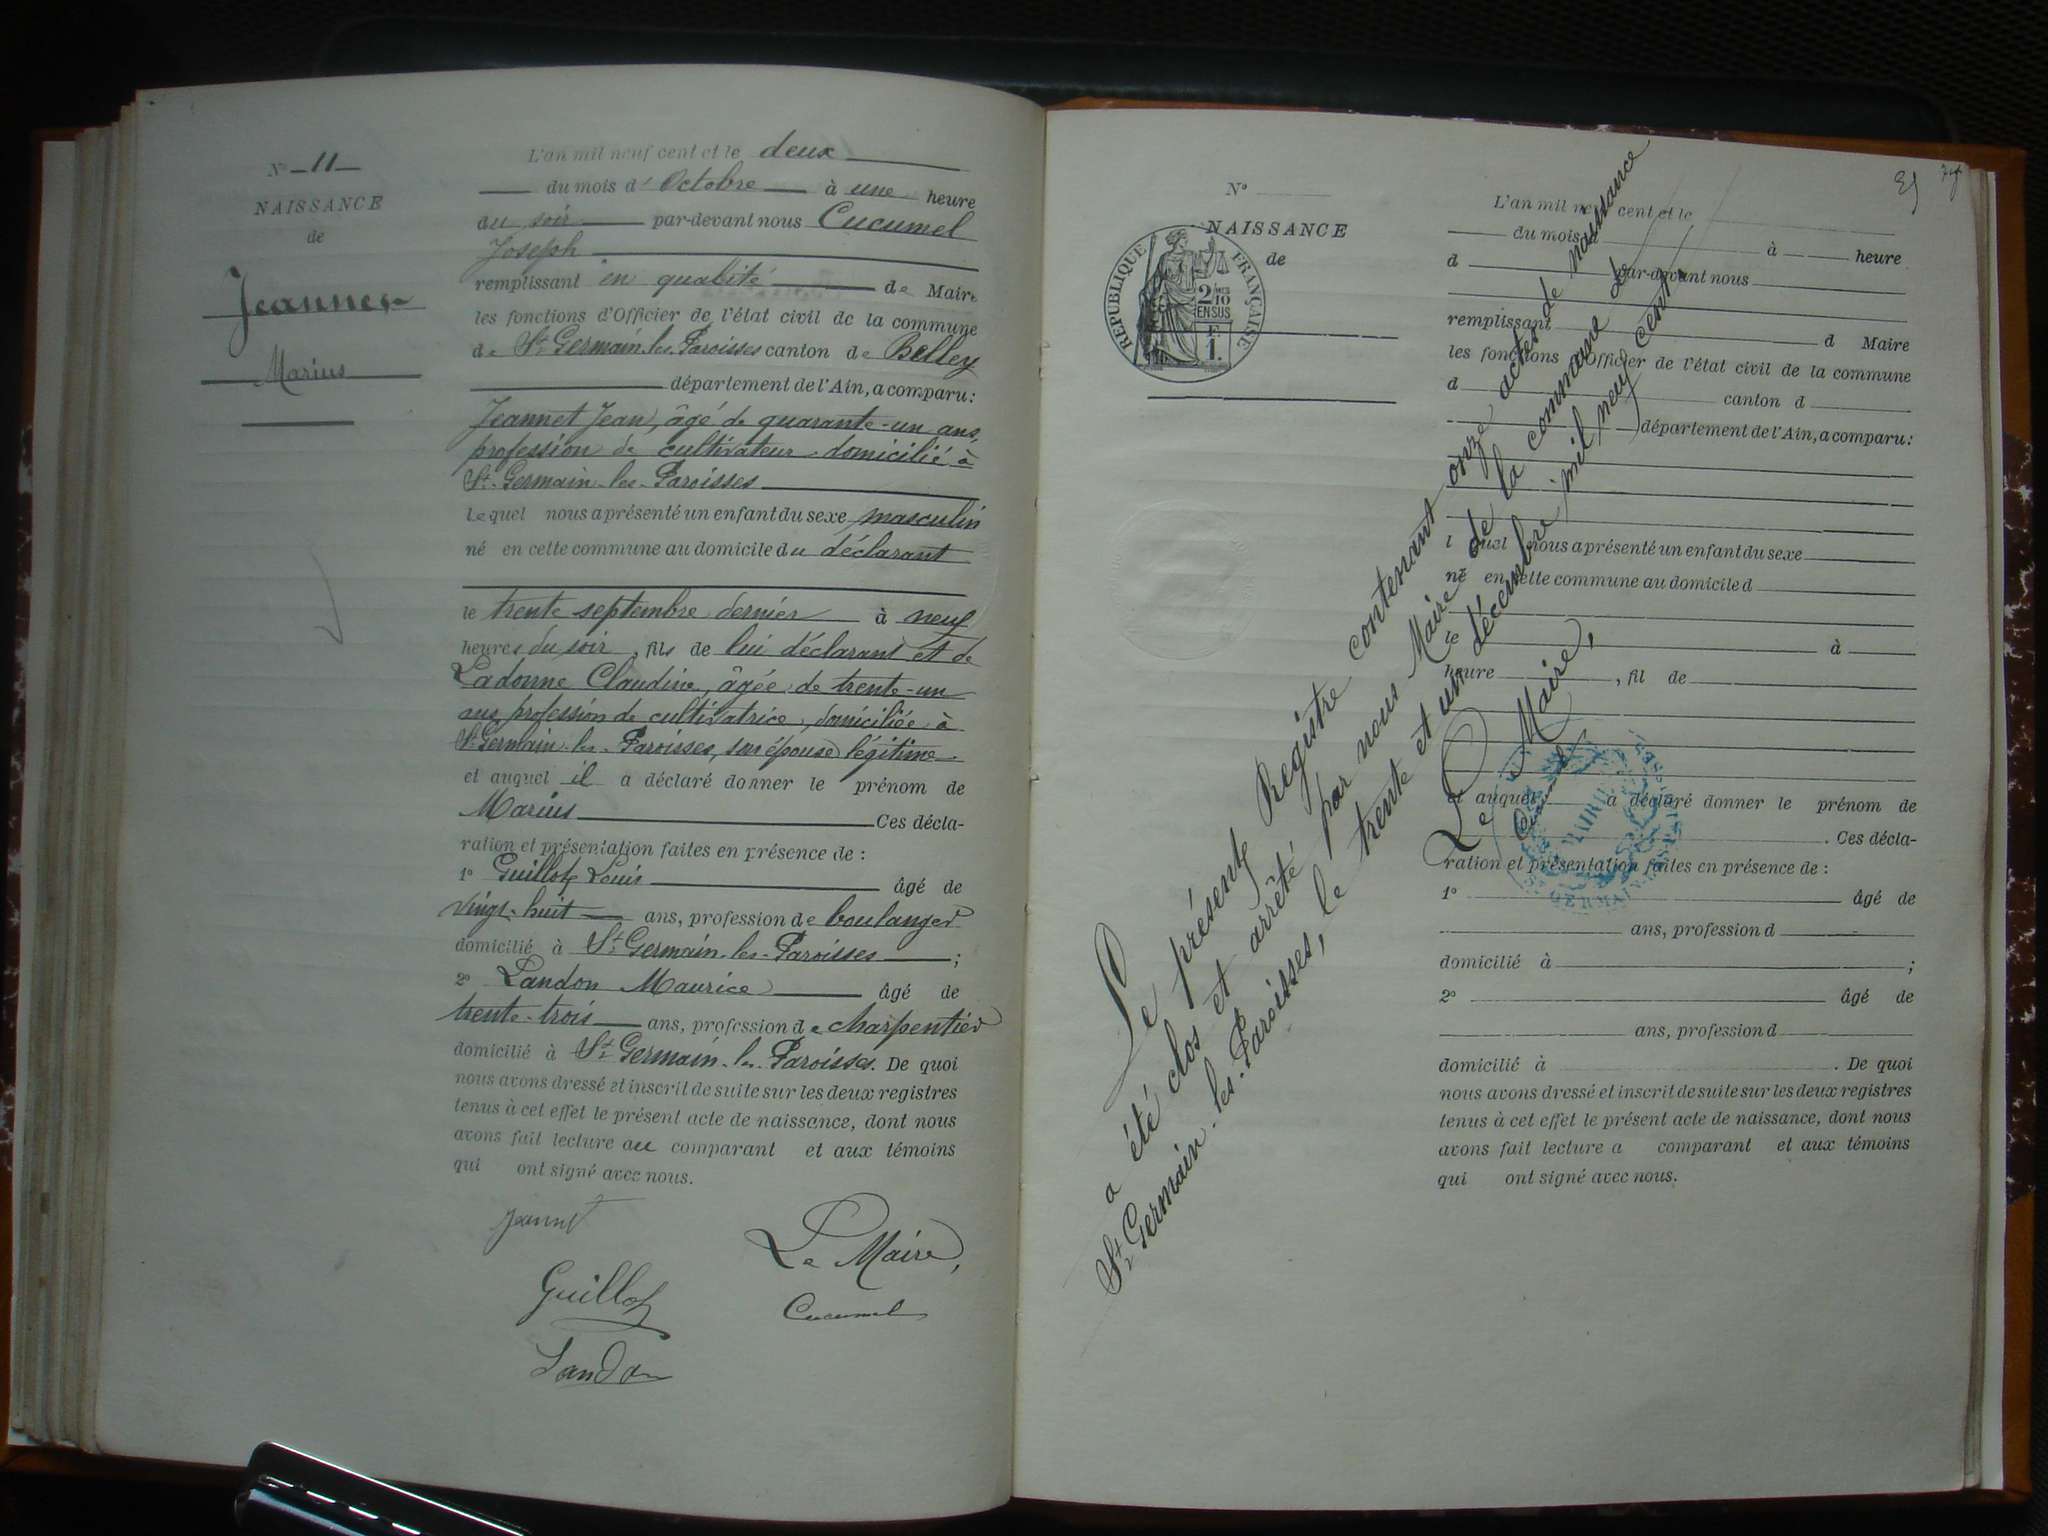 N° 11
NAISSANCE
de
Jeannet
Marius
L'an mil neuf cent et le deux
du mois d'Octobre à une heure
du soir par-devant nous Cucumel
Joseph
remplissant en qualité de Maire
les fonctions d'Officier de l'état civil de la commune
de St Germain-les-Paroisses canton de Belley
département de l'Ain, a comparu:
Jeannet Jean, âgé de quarante-un ans,
profession de cultivateur domicilié à
St-Germain-les-Paroisses
Lequel nous a présenté un enfant du sexe masculin
né en cette commune au domicile du déclarant
le trente septembre dernier à neuf
heures du soir, fils de lui déclarant et de
Ladonne Claudine, âgée de trente-un
ans, profession de cultivatrice, domiciliée à
St Germain-les-Paroisses, son épouse légitime
et auquel il a déclaré donner le prénom de
Marius Ces décla-
ration et présentation faites en présence de :
1° Guillot Louis âgé de
vingt-huit ans, profession de boulanger
domicilié à St Germain-les-Paroisses ;
2° Landon Maurice âgé de
trente-trois ans, profession de charpentier
domicilié à St Germain-les-Paroisses. De quoi
nous avons dressé et inscrit de suite sur les deux registres
tenus à cet effet le présent acte de naissance, dont nous
avons fait lecture au comparant et aux témoins
qui ont signé avec nous.
Jeannet
Le Maire,
Guillot
Cucumel
Landon
N°
NAISSANCE
de
RÉPUBLIQUE FRANÇAISE
2/10
EN SUS
F.
1.
L'an mil neuf cent et le
du mois d à heure
d par-devant nous
remplissant d Maire
les fonctions d'Officier de l'état civil de la commune
d canton d
département de l'Ain, a comparu:
l quel nous a présenté un enfant du sexe
né en cette commune au domicile d
le à
heure , fil de
et auquel a déclaré donner le prénom de
. Ces décla-
ration et présentation faites en présence de :
1° âgé de
ans, profession d
domicilié à ;
2° âgé de
ans, profession d
domicilié à . De quoi
nous avons dressé et inscrit de suite sur les deux registres
tenus à cet effet le présent acte de naissance, dont nous
avons fait lecture a comparant et aux témoins
qui ont signé avec nous.
Le présent Registre contenant onze actes de naissance
a été clos et arrêté par nous Maire de la commune de
St Germain-les-Paroisses, le trente et un décembre mil neuf cent.
Le Maire,
Cucumel
MAIRIE
ST GERMAIN-LES-PAROISSES